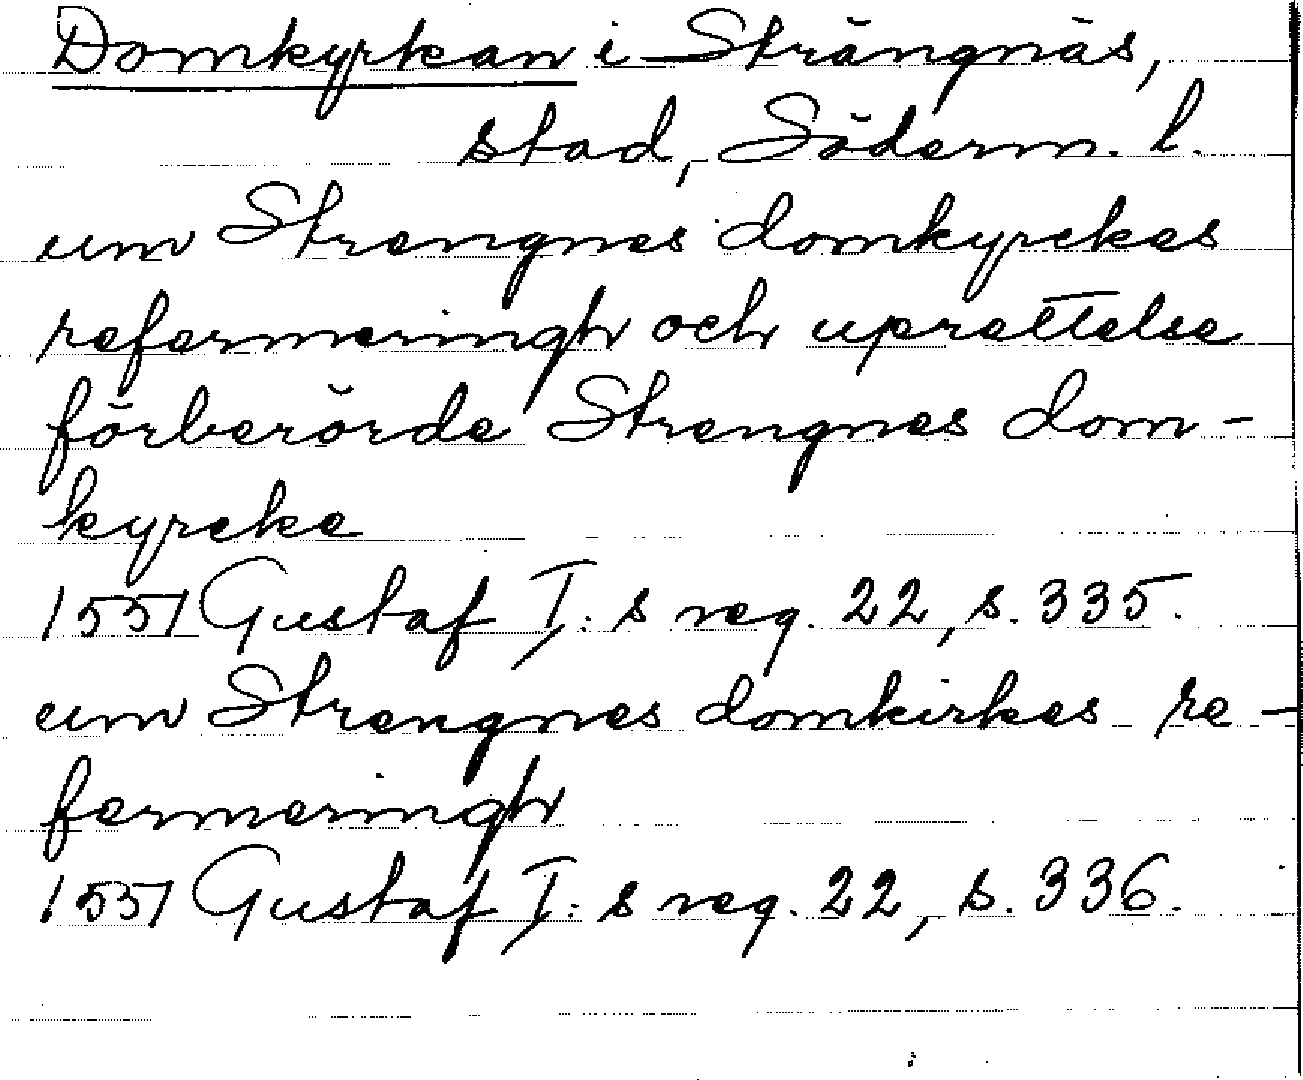 Domkyrkan i Strängnäs,
stad, Söderm. l.
um Strengnes domkyrckes
reformeringh och uprettelse
förberörde Strengnes dom-
kyrcke
1551 Gustaf I:s reg. 22, s. 335.
um Strengnes domkirkes re-
formeringh
1551 Gustaf I:s reg. 22, s. 336.